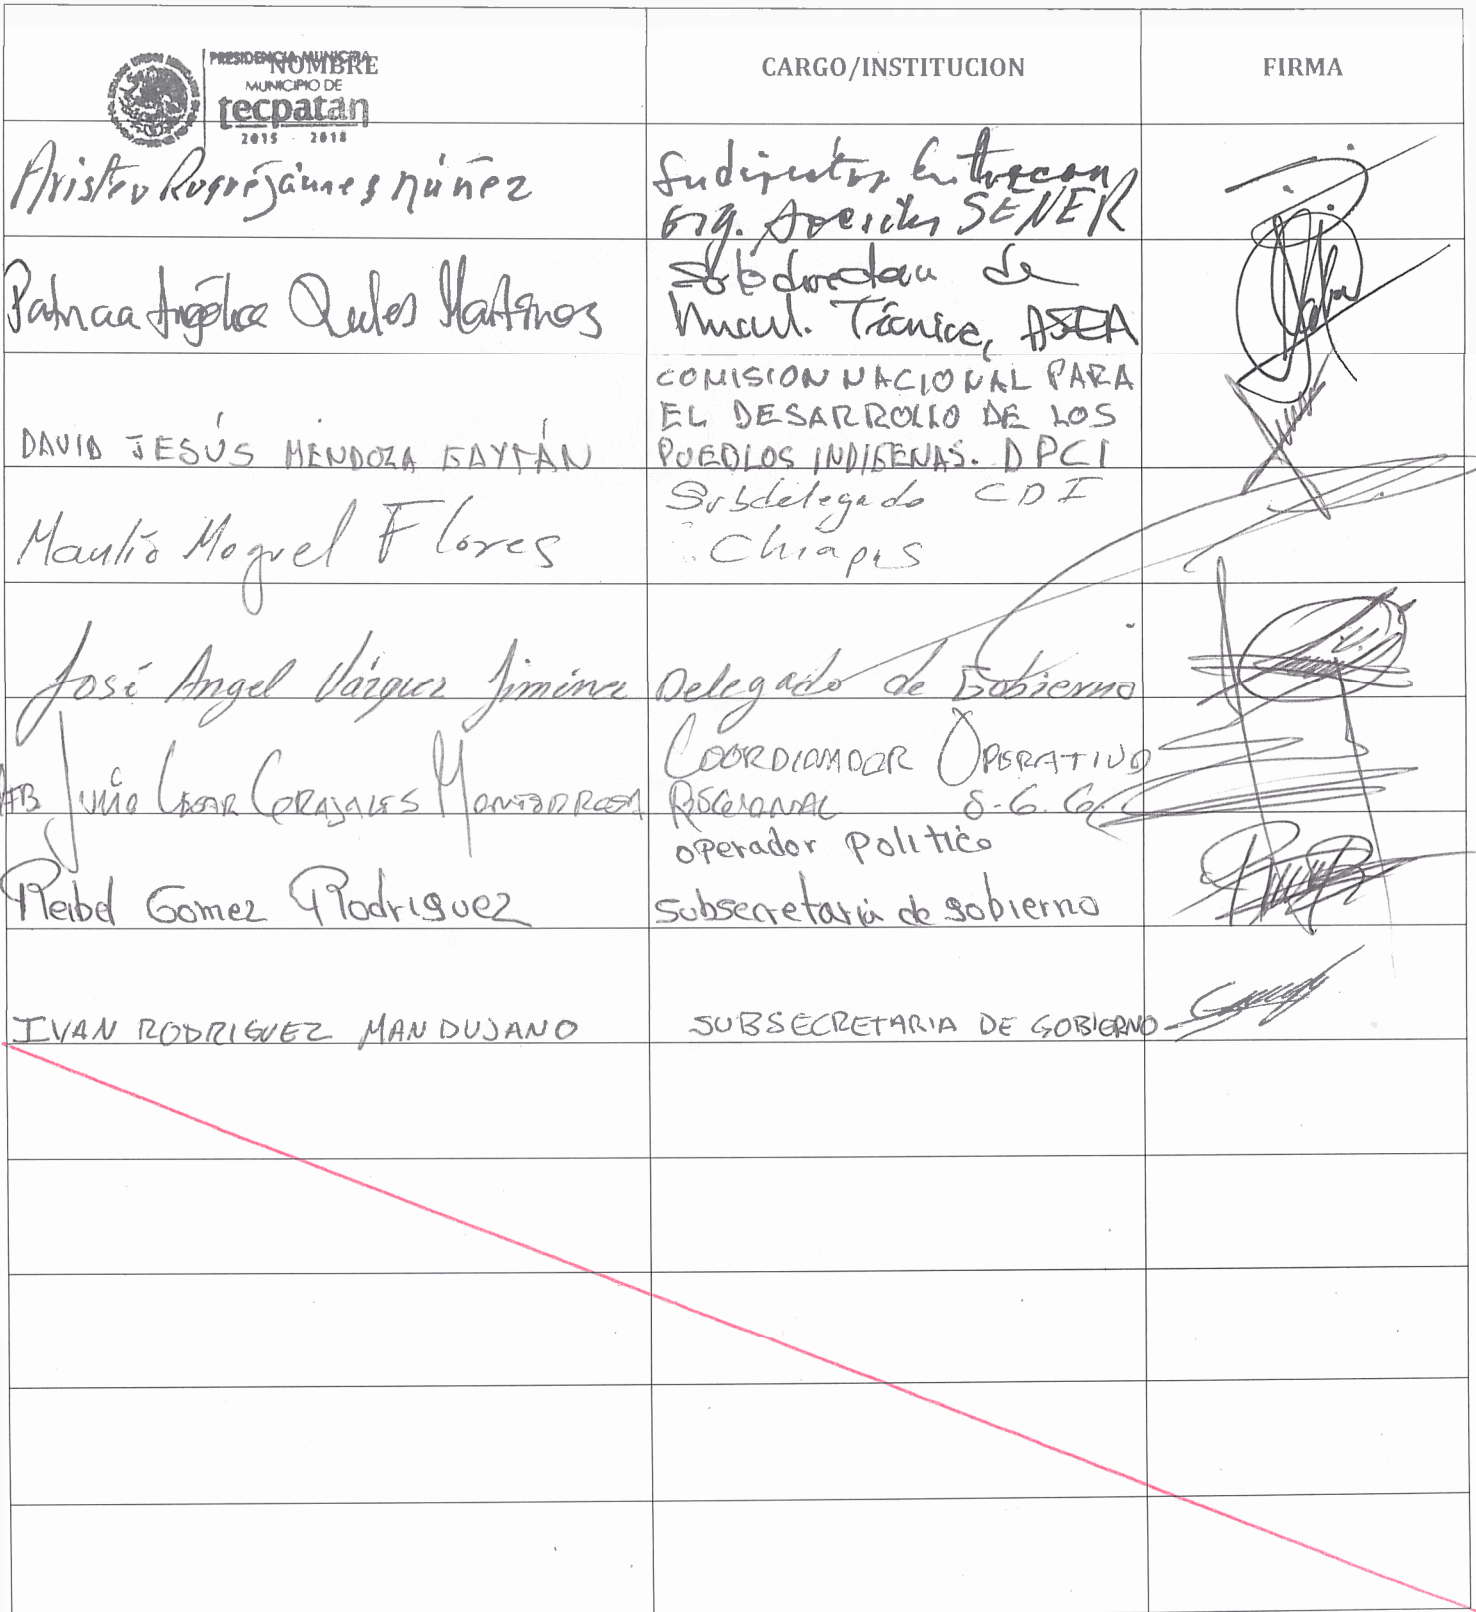 PRESIDENCIA MUNICIPAL
NOMBRE
MUNICIPIO DE
tecpatán
2015 - 2018
CARGO/INSTITUCION
FIRMA
Núñez
SENER
Patricia Angélica Quiles Martínez
Subdirectora de
Vincul. Técnica, ASEA
DAVID JESÚS MENDOZA GAYTÁN
COMISION NACIONAL PARA
EL DESARROLLO DE LOS
PUEBLOS INDIGENAS. DPCI
Manlio Moguel Flores
Subdelegado CDI
Chiapas
José Angel Vázquez Jiménez
Delegado de Gobierno
Julio Cesar
COORDINADOR OPERATIVO
REGIONAL S.G.G.
Reibel Gomez Rodriguez
operador politico
subsecretaria de gobierno
IVAN RODRIGUEZ MANDUJANO
SUBSECRETARIA DE GOBIERNO